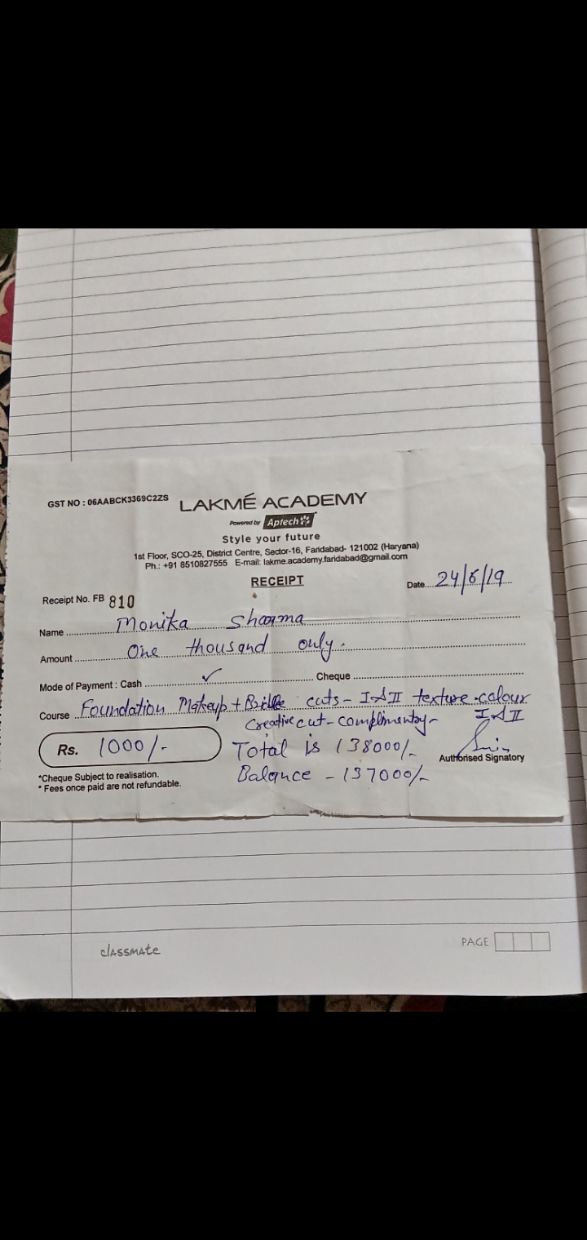 GST NO : 06AABCK3369C2ZS
LAKMÉ ACADEMY
Powered by Aptech
Style your future
1st Floor, SCO-25, District Centre, Sector-16, Faridabad- 121002 (Haryana)
Ph.: +91 8510827555 E-mail: lakme.academy.faridabad@gmail.com
RECEIPT
Receipt No. FB 810
Date 24/6/19
Name Monika Sharma
Amount One thousand only.
Mode of Payment : Cash ✓ Cheque
Course Foundation Makeup + cuts - I & II texture - colour
Creative cut - complimentary - I & II
Rs. 1000/-
Total is 138000/-
Balance - 137000/-
Authorised Signatory
*Cheque Subject to realisation.
* Fees once paid are not refundable.
classmate
PAGE